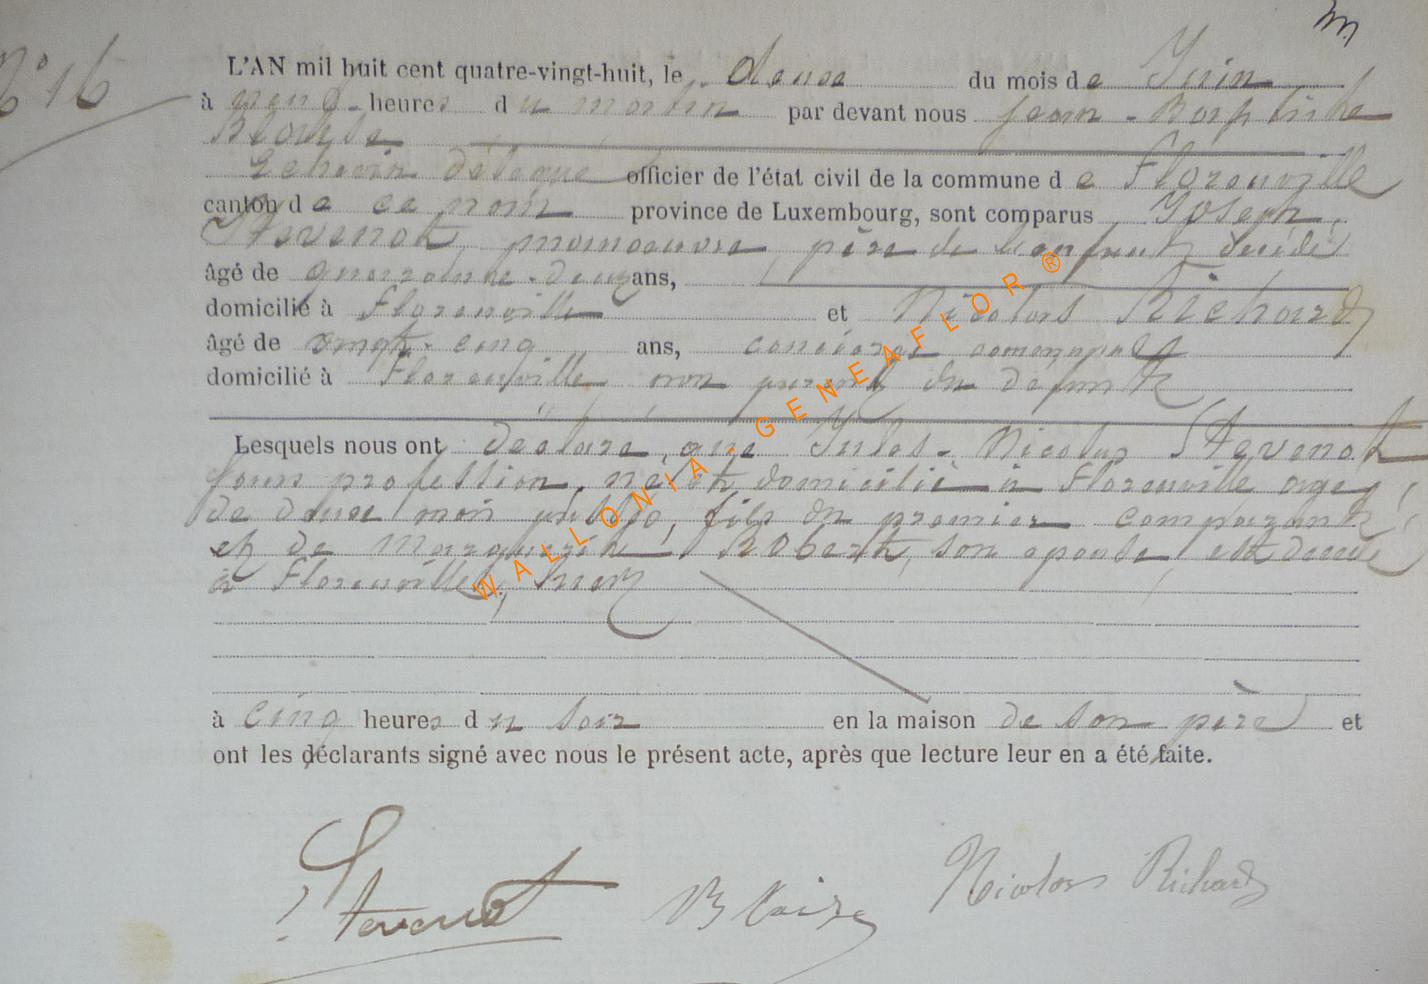 m
N° 16
L'AN mil huit cent quatre-vingt-huit, le douze du mois de Juin
à neuf heures du matin par devant nous Jean-Baptiste
Blaise
Echevin délégué officier de l'état civil de la commune de Florenville
canton de ce nom province de Luxembourg, sont comparus Joseph
Stevenot, manoeuvre père de l'enfant décédé
âgé de quarante-deux ans,
domicilié à Florenville et Nicolas Richard
âgé de vingt-cinq ans,
domicilié à Florenville non parent du défunt
Lesquels nous ont déclaré que Jules-Nicolas Stevenot
sans profession, né et domicilié à Florenville âgé
de douze mois, fils du premier comparant
et de Marguerite Robert, son épouse, est décédé
à Florenville, hier
à cinq heures du soir en la maison de son père et
ont les déclarants signé avec nous le présent acte, après que lecture leur en a été faite.
J Stevenot Blaise Nicolas Richard
WALLONIA-GENEAFLOR®